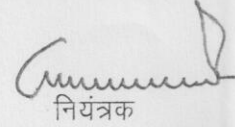 नियंत्रक